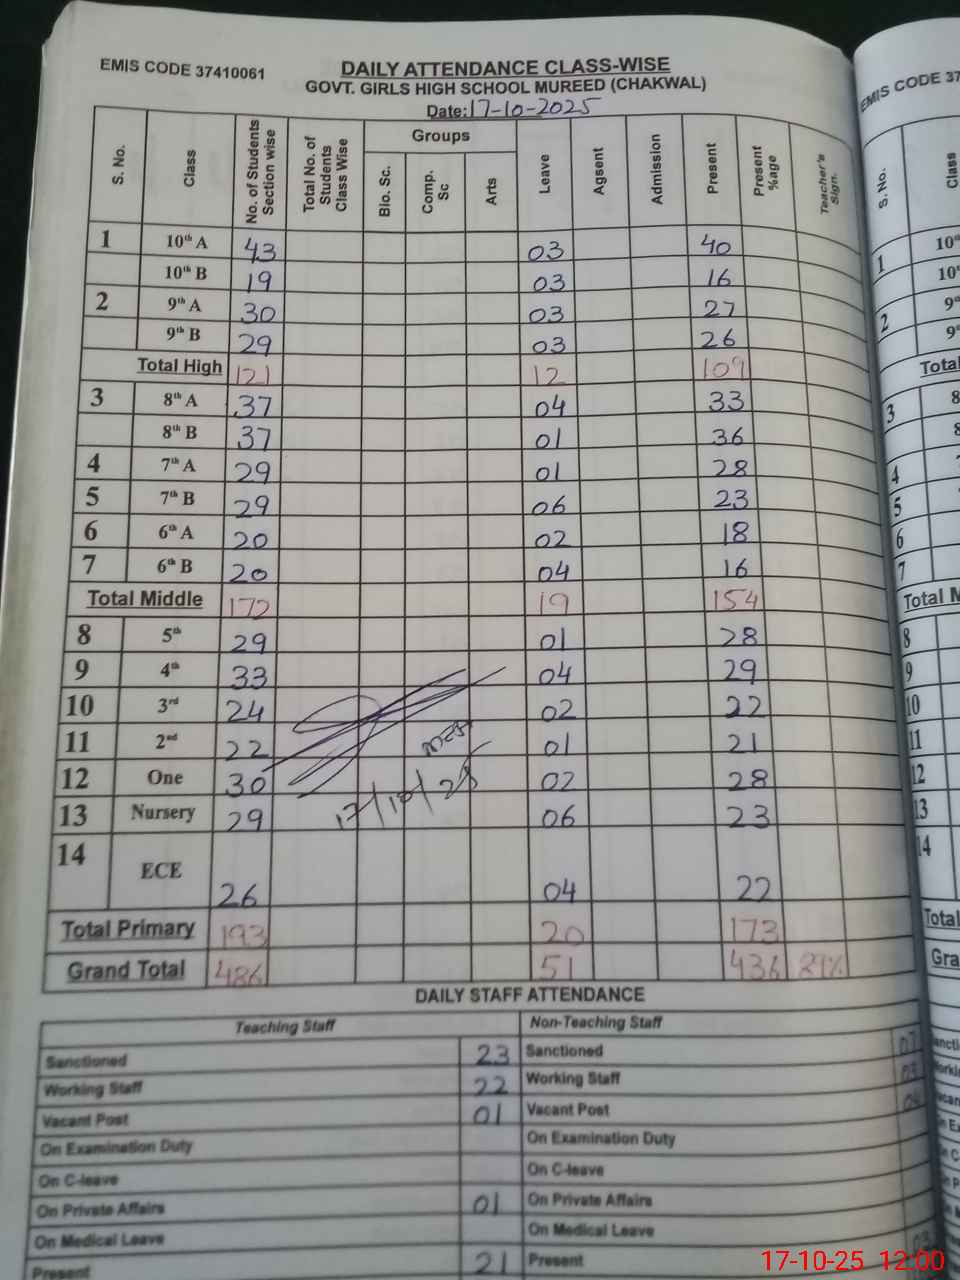 EMIS CODE 37410061
DAILY ATTENDANCE CLASS-WISE
GOVT. GIRLS HIGH SCHOOL MUREED (CHAKWAL)
Date: 17-10-2025
S. No. Class No. of Students Section wise Total No. of Students Class Wise Groups Bio. Sc. Comp. Sc Arts Leave Agsent Admission Present Present %age Teacher's Sign.
1 10th A 43 03 40
10th B 19 03 16
2 9th A 30 03 27
9th B 29 03 26
Total High 121 12 109
3 8th A 37 04 33
8th B 37 01 36
4 7th A 29 01 28
5 7th B 29 06 23
6 6th A 20 02 18
7 6th B 20 04 16
Total Middle 172 19 154
8 5th 29 01 28
9 4th 33 04 29
10 3rd 24 02 22
11 2nd 22 01 21
12 One 30 02 28
13 Nursery 29 06 23
17/10/25
14 ECE 26 04 22
Total Primary 193 20 173
Grand Total 486 51 436 89%
DAILY STAFF ATTENDANCE
Teaching Staff Non-Teaching Staff
Sanctioned 23 Sanctioned 07
Working Staff 22 Working Staff 03
Vacant Post 01 Vacant Post 04
On Examination Duty On Examination Duty
On C-leave On C-leave
On Private Affairs 01 On Private Affairs
On Medical Leave On Medical Leave
Present 21 Present 03
17-10-25 12:00
EMIS CODE 37
S. No. Class
1 10th
10th
2 9th
9th
Total
3 8
8
4
5
6
7
Total M
8
9
10
11
12
13
14
Total
Gra